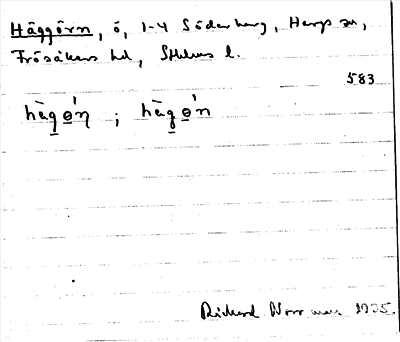 Häggörn, ö, 1-4 Söderberg, Hargs sn,
Frösåkers hd, Sthlms l.
583
hä̀go̠ŋ ; hä̀go̠n
Rickard Norrman 1935.